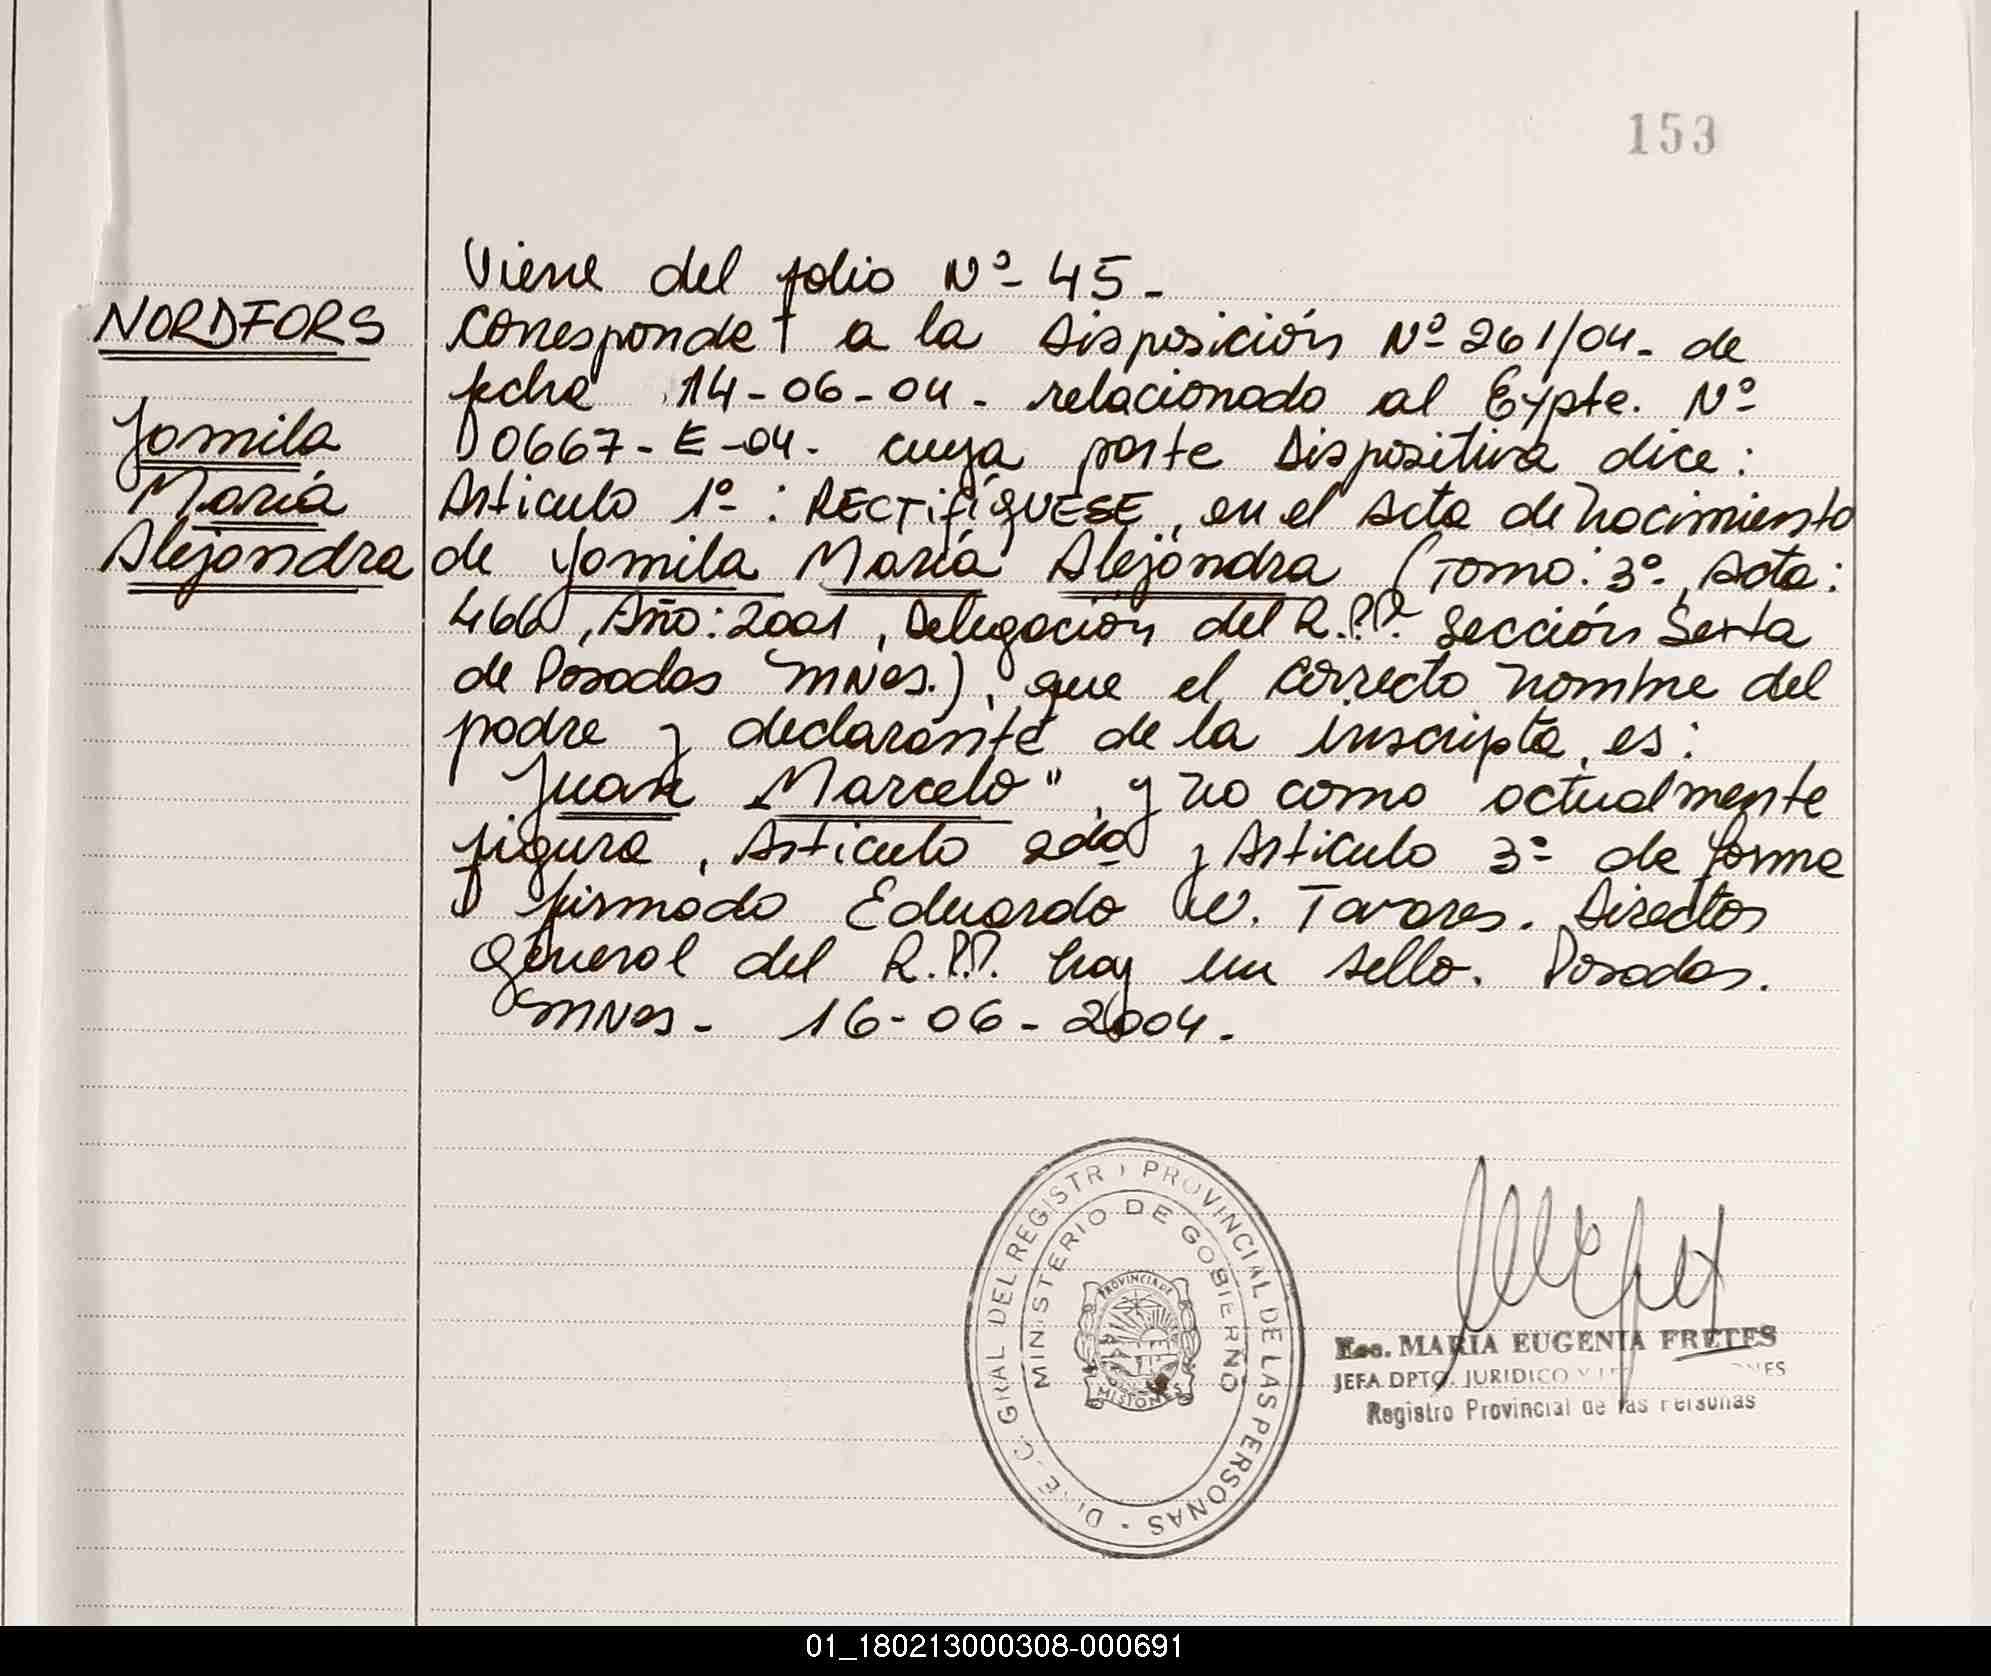 153
Viene del folio Nº 45-
NORDFORS
Corresponde a la Disposición Nº 261/04- de
fecha 14-06-04- relacionado al Expte. Nº
Yamila
0667-E-04- cuya parte Dispositiva dice:
María
Artículo 1º: RECTIFÍQUESE, en el Acta de Nacimiento
Alejandra
de Yamila María Alejandra (Tomo: 3º, Acta:
466, Año: 2001, Delegación del R.P.P. Sección Sexta
de Posadas Mnes.), que el correcto nombre del
padre y declarante de la inscripta, es:
Juan Marcelo", y no como actualmente
figura, Artículo 2do y Artículo 3º de forma
firmado Eduardo W. Tavares. Director
General del R.P.P. hay un sello. Posadas.
Mnes- 16-06-2004-
GRAL DEL REGISTR PROVINCIAL DE LAS PERSONAS
MINISTERIO DE GOBIERNO
PROVINCIA DE
MISIONES
Esc. MARIA EUGENIA FRETES
JEFA DPTO. JURIDICO Y
Registro Provincial de las Personas
01_180213000308-000691